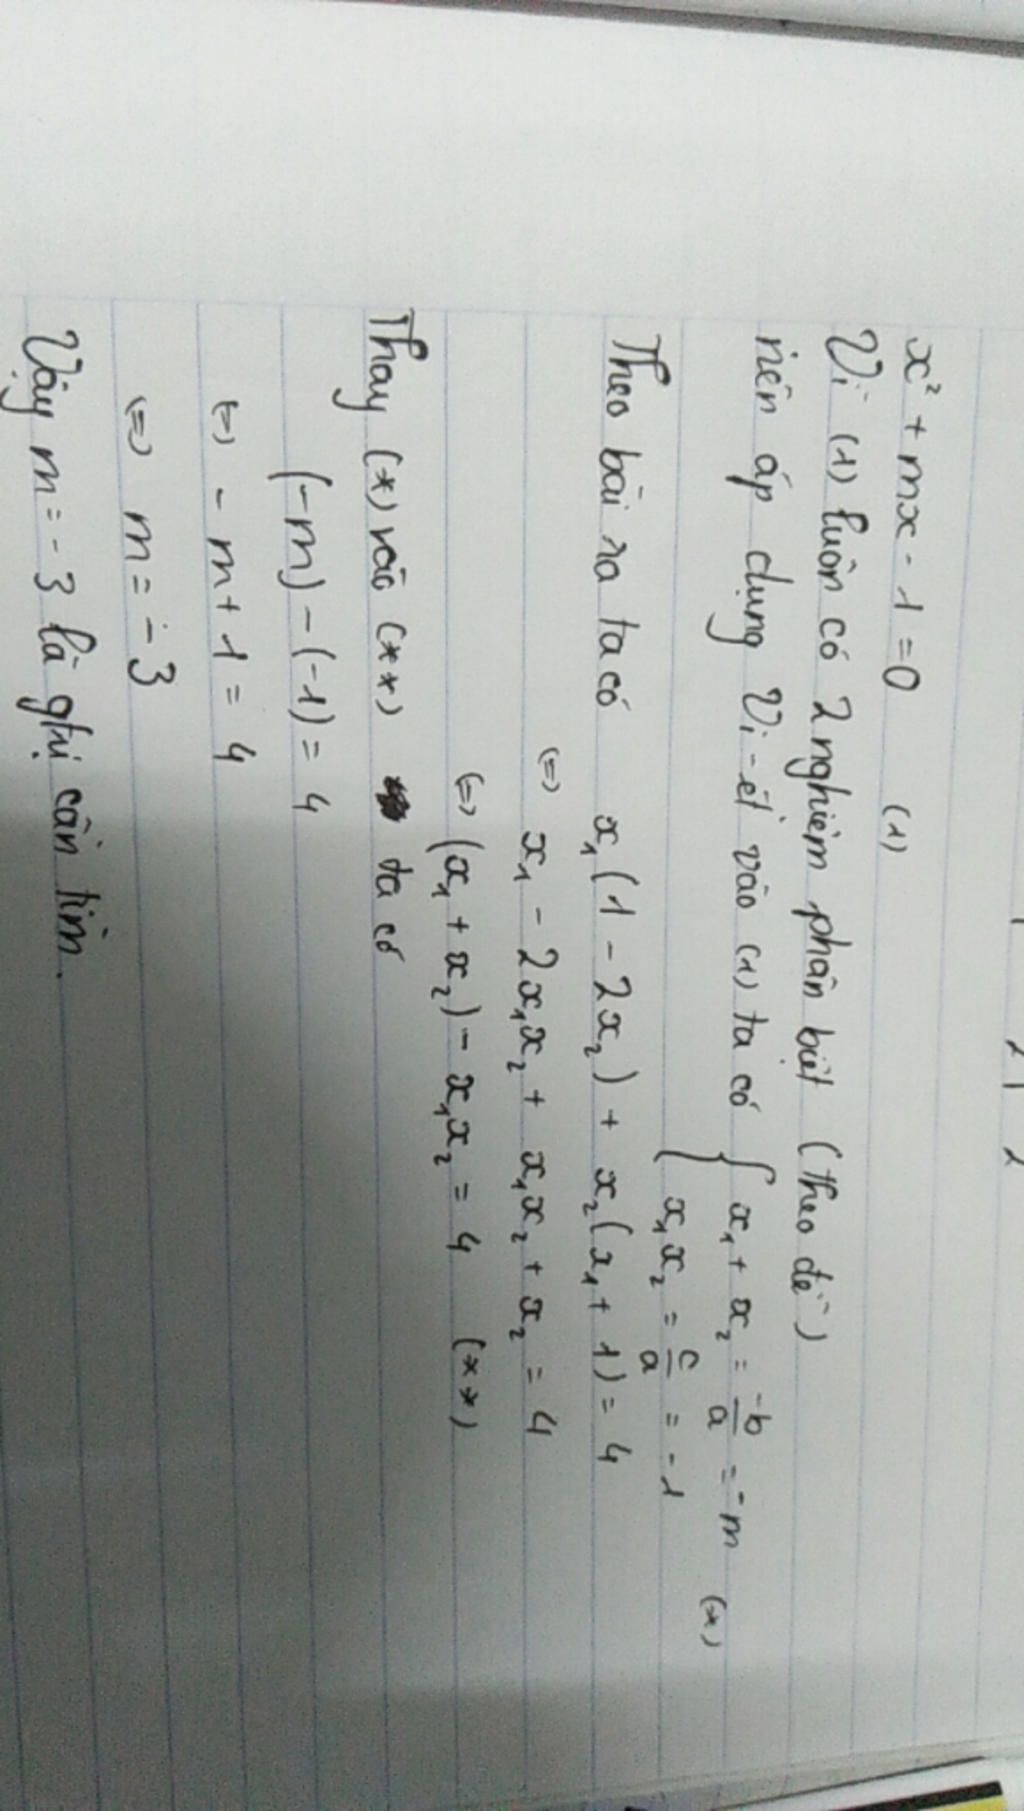 x² + mx - 1 = 0 (1)
Vì (1) luôn có 2 nghiệm phân biệt (theo đề)
nên áp dụng Vi-ét vào (1) ta có { x₁ + x₂ = -b/a = -m (*)
{ x₁x₂ = c/a = -1
Theo bài ra ta có x₁(1 - 2x₂) + x₂(x₁ + 1) = 4
(=) x₁ - 2x₁x₂ + x₁x₂ + x₂ = 4
(=) (x₁ + x₂) - x₁x₂ = 4 (**)
Thay (*) vào (**) ta có
(-m) - (-1) = 4
(=) - m + 1 = 4
(=) m = -3
Vậy m = -3 là gtrị cần tìm.